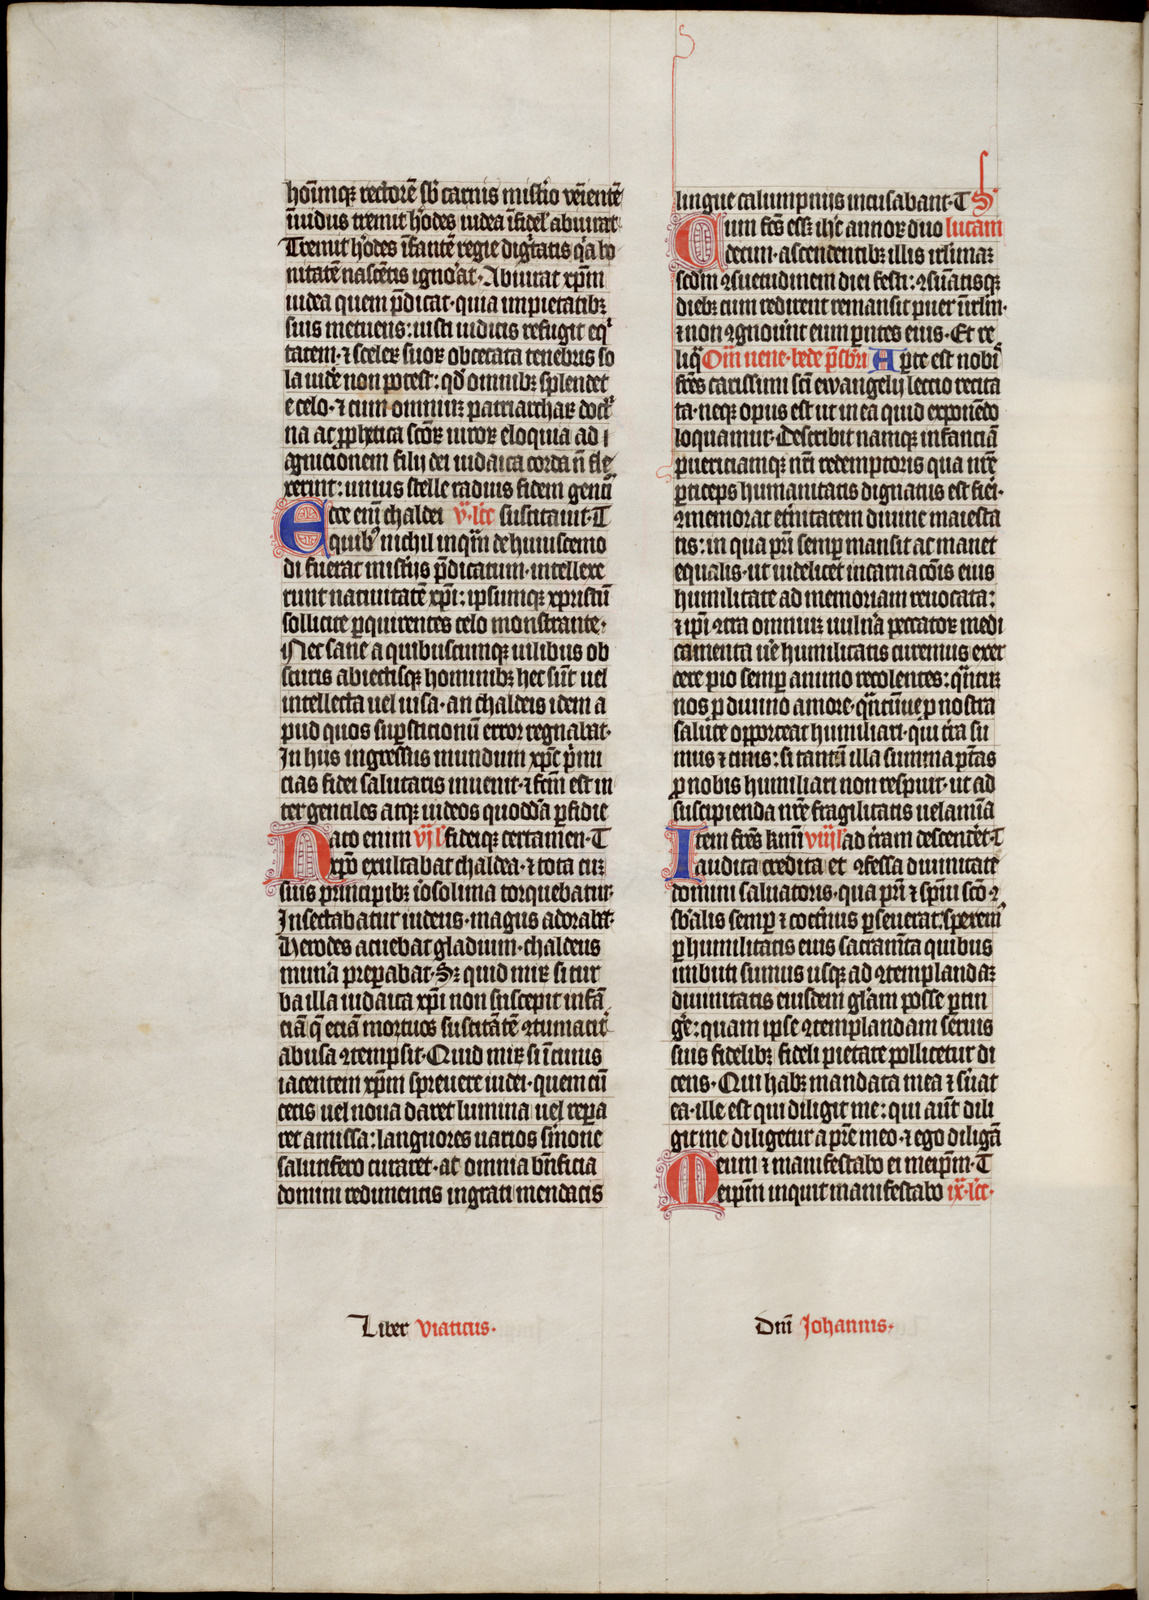 hoīnūqꝫ rectorē sb carnis mistio veīentē
īuidus tremit hodes iudea īfidel abiurat
Tremit hodes īfantē regie dignitatis qa bo
nitatē nascētis ignorat · Abiurat xpm
iudea quem pdicat · quia impietatibꝫ
suis metuens : iusti iudicis refugit eqi
tatem · ⁊ scelerꝫ suorꝫ obcecata tenebris so
la uide non potest : qd omnibꝫ splendet
e celo · ⁊ cum omniuꝫ patriarchaꝝ doctri
na ac pphetica scoꝝ uiroꝝ eloquia ad
agnicionem filij dei iudaica corda n fle
xerint : unius stelle radius fidem genti
Ecce eni chaldei v · lcc suscitauit · T
e quibꝰ nichil inqm de huiuscemo
di fuerat mistijs pdicatum · intellexe
runt natiuitatē xpi : ipsumqꝫ xpristū
sollicite pquirentes celo monstrante ·
Nec sane a quibuscumqꝫ uilibus ob
scuris abiectisqꝫ hominibꝫ hec sūt uel
intellecta uel uisa · an chaldeis idem a
pud quos supsticionū error regnabat ·
In hijs ingressus mundum xpc pmi
cias fidei salutaris inuenit · ⁊ fcm est in
ter gentiles atqꝫ iudeos quoddā pfidie
Nato enim vj l fideiqꝫ certamen · T
xpo exultabat chaldea · ⁊ tota cuꝫ
suis principibꝫ iosolima torquebatur ·
Insectabatur iudeus · magus adorabat ·
Herodes acuebat gladium · chaldeus
munera preparabat · Sꝫ quid mirꝫ si tur
ba illa iudaica xpi non suscepit infā
ciā q eciā mortuos suscitātē ꝯtumaciter
abusa ꝯtempsit · Quid mirꝫ si ī cunis
iacentem xpm spreuere iudei · quem cū
cecis uel noua daret lumina uel repa
ret amissa : languores uarios smone
salutifero curaret · ac omnia bnficia
domini redimentis ingrati mendacis
lingue calumpniis incusabant · T S
Cum fcs esset ihc annoꝝ duo lucam
decim · ascendentibꝫ illis irlimaꝫ
scdm ꝯsuetudinem diei festi : ꝯsūatisqꝫ
diebꝫ cum redirent remansit puer ī irlm ·
⁊ non ꝯgnouūt eum parentes eius · Et re
liq Om uene · bede psbri Aperte est nobis
frēs carissimi sci ewangelij lectio recita
ta · neqꝫ opus est ut in ea quid exponēdo
loquamur · Describit namqꝫ infanciā
puericiamqꝫ nri redemptoris qua nre
particeps humanitatis dignatus est fieri ·
ꝯmemorat eternitatem diuine maiesta
tis : in qua pri semp mansit ac manet
equalis · ut uidelicet incarnacōis eius
humilitate ad memoriam reuocata :
⁊ ipi ꝯtra omniuꝫ uulnera peccatoꝝ medi
camenta uere humilitatis curemus exer
cere pio semp animo recolentes : quantuꝫ
nos p diuino amore · quantūue p nostra
salute opporteat humiliari · qui terra su
mus ⁊ cinis : si tantum illa summa ptas
p nobis humiliari non respuit · ut ad
suscipienda nre fragilitatis uelamina
Item fres kmi viij l ad terram descendēt · T
audita credita et ꝯfessa diuinitate
domini saluatoris · qua pri ⁊ spiui sco ꝯ
sbalis semp ⁊ coeternus pseuerat : speremꝰ
p humilitatis eius sacramenta quibus
imbuti sumus usqꝫ ad ꝯtemplandaꝫ
diuinitatis eiusdem gloriam posse ptin
gere : quam ipse ꝯtemplandam seruis
suis fidelibꝫ fideli pietate pollicetur di
cens · Qui habꝫ mandata mea ⁊ suat
ea · ille est qui diligit me : qui aūt dili
git me diligetur a pre meo · ⁊ ego diligā
eum ⁊ manifestabo ei meipm · T
Meipm inquit manifestabo ix · lcc ·
Liber viaticus ·
Dnī Johannis ·